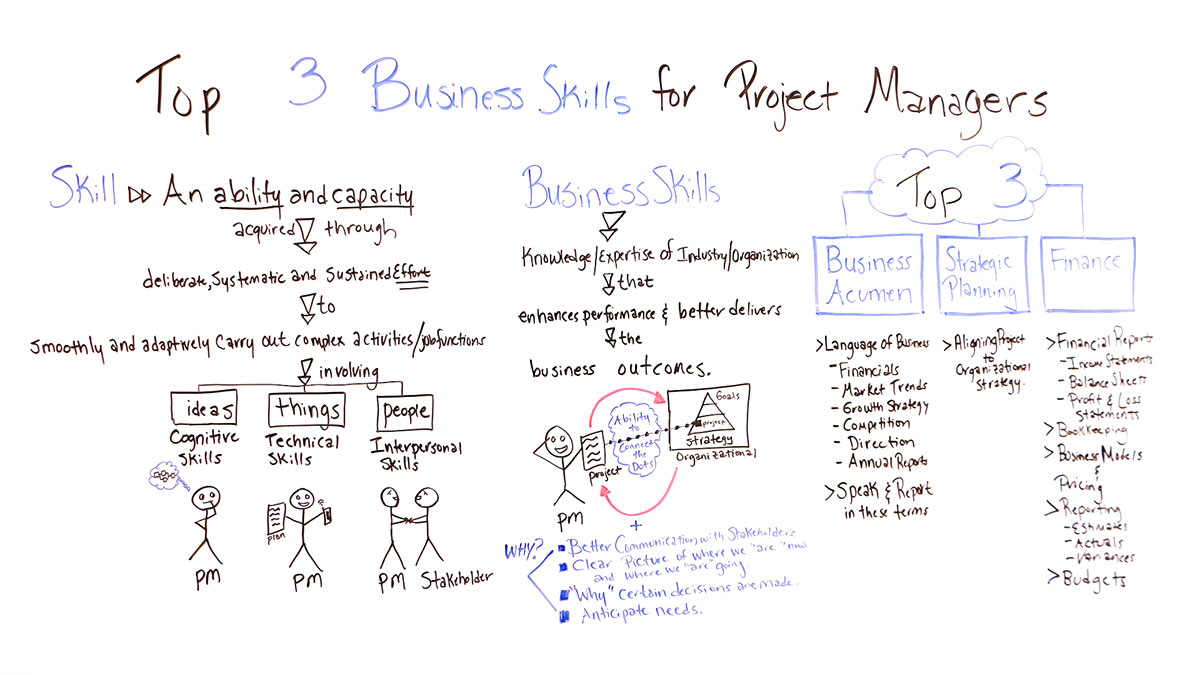 Top 3 Business Skills for Project Managers
Skill ▷▷ An ability and capacity
acquired through
deliberate, Systematic and Sustained Effort
to
Smoothly and adaptively Carry out complex activities/jobfunctions
involving
ideas
things
people
Cognitive
Skills
Technical
Skills
Interpersonal
Skills
plan
PM
PM
PM
Stakeholder
Business Skills
Knowledge/Expertise of Industry/Organization
that
enhances performance & better delivers
the
business outcomes.
Ability
to
Connect
the
Dots
Goals
project
Strategy
Organizational
project
PM
+
WHY?
Better Communication with Stakeholders
Clear Picture of where we "are" now
and where we "are" going.
"Why" Certain decisions are made.
Anticipate needs.
Top 3
Business
Acumen
Strategic
Planning
Finance
>Language of Business
- Financials
- Market Trends
- Growth Strategy
- Competition
- Direction
- Annual Reports
>Speak & Report
in these terms
>Aligning Project
to
Organizational
Strategy.
>Financial Reports
- Income Statements
- Balance Sheets
- Profit & Loss
Statements
>Bookkeeping
>Business Models
&
Pricing
>Reporting
- Estimates
- Actuals
- Variances
>Budgets